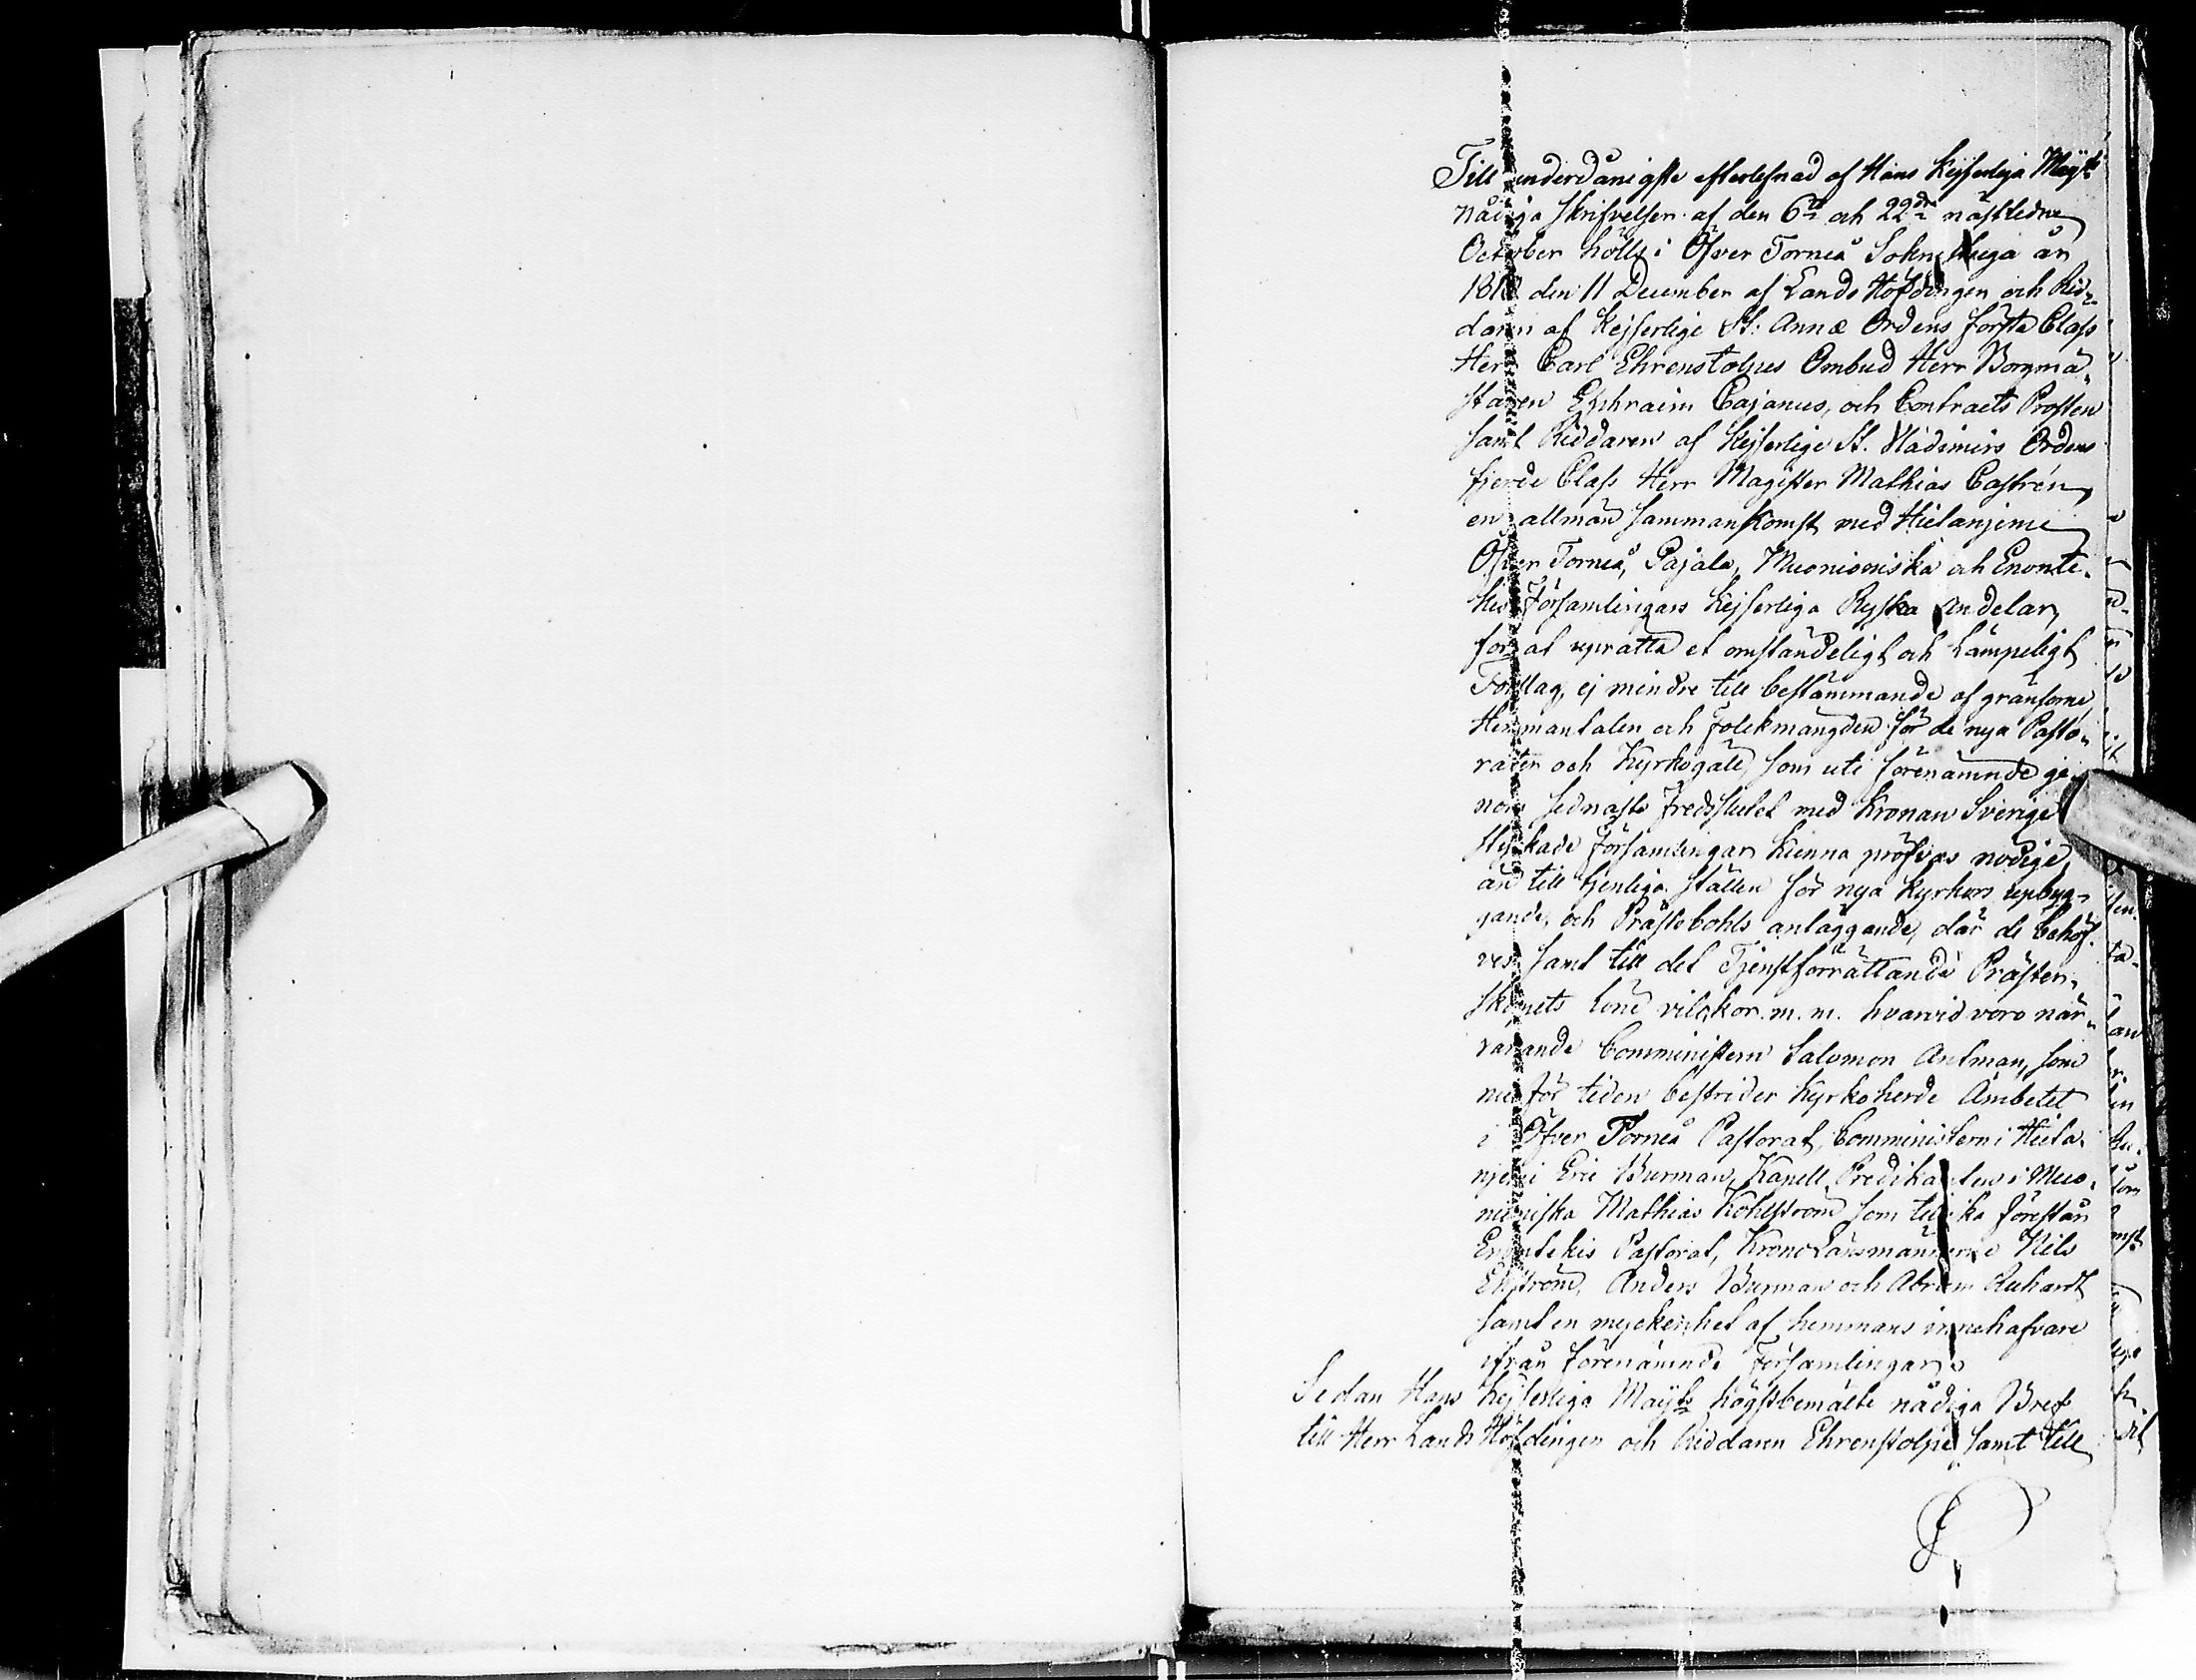 Till underdånigste efterlefnad af Hans Kejserliga Mayts
nådiga Skrifvelser af den 6te och 22dra nästledne
October hölls i Öfver Torneå Sokn år
181 den 11 December af Lands Höfdingen och Rid¬
daren af Kejserlige St: Annæ Ordens första Class
Herr Carl Ehrenstolpes Ombud Herr Borgmä¬
staren Ephraim Cajanus, och Contracts Prosten
samt Riddaren af Kejserlige St. Wladimirs Ordens
fjerde Class Herr Magister Mathias Castrén,
en allmän sammankomst med Hietaniemi
Öfver Torneå, Pajala, Muonioniska och Enonte¬
kis Församlingars Kejserliga Ryska Andelar,
för at uprätta et omständeligt och Lämpeligt
Förslag, ej mindre till bestämmande af gränsorne,
Hemmantalen och Folckmängden för de nya Pasto¬
rater och Kyrkogäll, som uti förenämnde ge¬
nom sednaste Fredsslutet med Kronan Sverige
styckade Församlingar kunna pröfvas nödige,
än till tjenliga ställen för nya Kyrkors upbyg¬
gande, och Prästebohls anläggande, där de behöf¬
ves, samt till det Tjenstförrättande Präster¬
skapets Löne vilckor m. m. hvarvid voro när¬
varande Comministern Salomon Antman, som
nu för tiden bestrider Kyrkoherde Ämbetet
i Öfver Torneå Pastorat, Comministern i Hieta¬
niemi Eric Burman, Kapell Predikanten i Muo¬
nioniska Mathias Kohlström som tillika förestår
Enontekis Pastorat, KronoLänsmännerne Nils
Ekström, Anders Burman och Abram Ruhardt
samt en myckenhet af hemmans innehafvare
ifrån förenämnde Församlingar.
Sedan Hans Kejserliga Mayts högstbemälte nådiga Bref
till Herr Lands Höfdingen och Riddaren Ehrenstolpe samt till